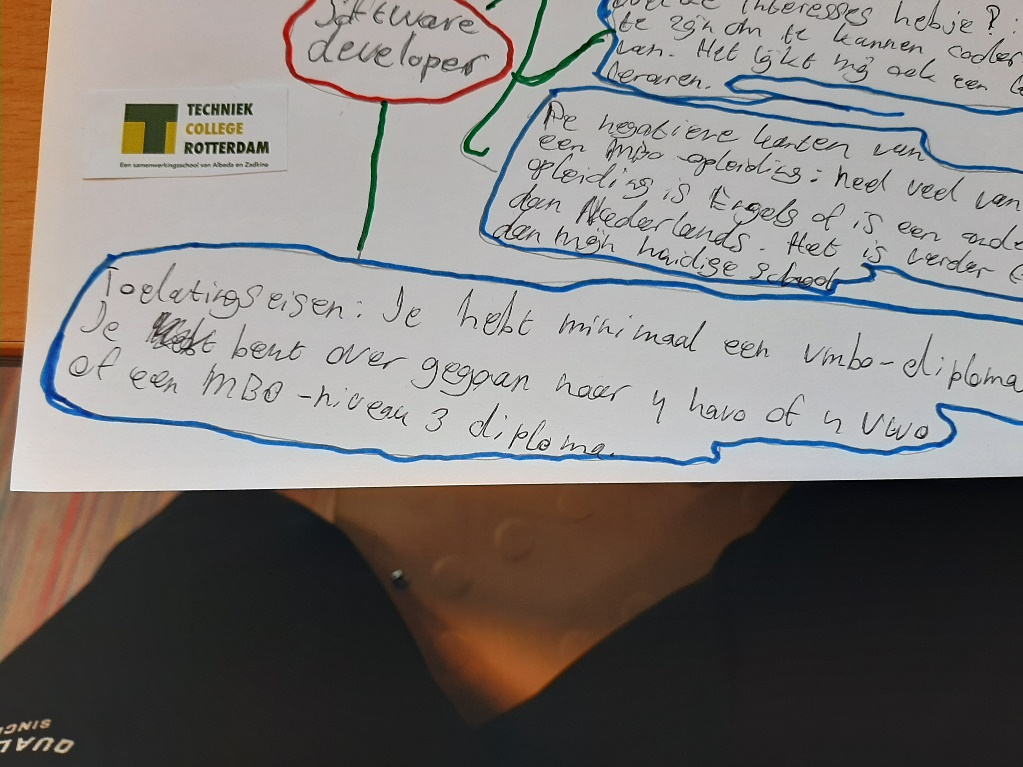 software
developer
TECHNIEK
COLLEGE
ROTTERDAM
Een samenwerkingsschool van Albeda en Zadkine
interesses heb je? :
te zijn om te kannen coder
van. Het lijkt mij ook een
leraren.
De negatieve kanten van
een MBO-opleiding: heel veel van
opleiding is Engels of is een ande
dan Nederlands. Het is verder
dan mijn huidige school
Toelatingseisen: Je hebt minimaal een vmbo-diploma
Je bent over gegaan naar 4 havo of 4 vwo
of een MBO-niveau 3 diploma.
QUAL
SINC